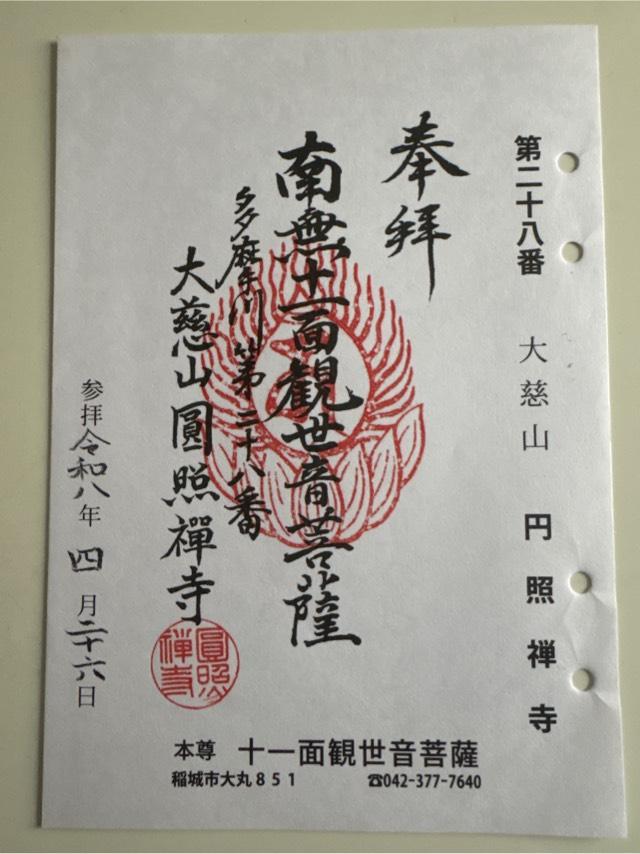 第二十八番 大慈山 円照禅寺
奉拝
南無十一面観世音菩薩
多麻川第二十八番
大慈山圓照禅寺
参拝令和八年四月二十六日
圓照禅寺
本尊 十一面観世音菩薩
稲城市大丸851 ☎042-377-7640